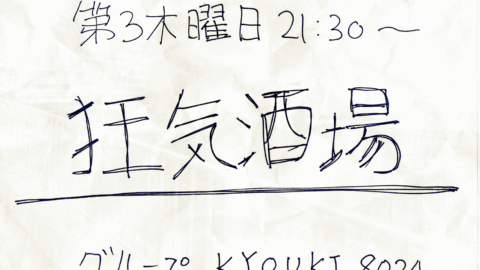 第3木曜日 21:30〜
狂気酒場
グループ KYOUKI